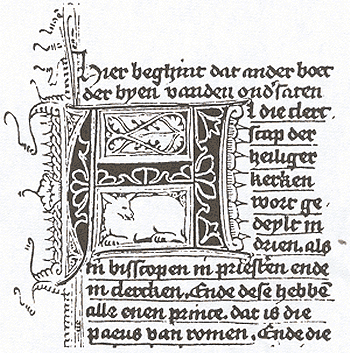 Hier beghint dat ander boec
der byen vanden ondsaten
Al die clert
scap der
heiliger
kerken
wort ge
deylt in
drien. als
in bisscopen in priesteren ende
in clercken. Ende dese hebben
alle enen prince. dat is die
paeus van romen. Ende die